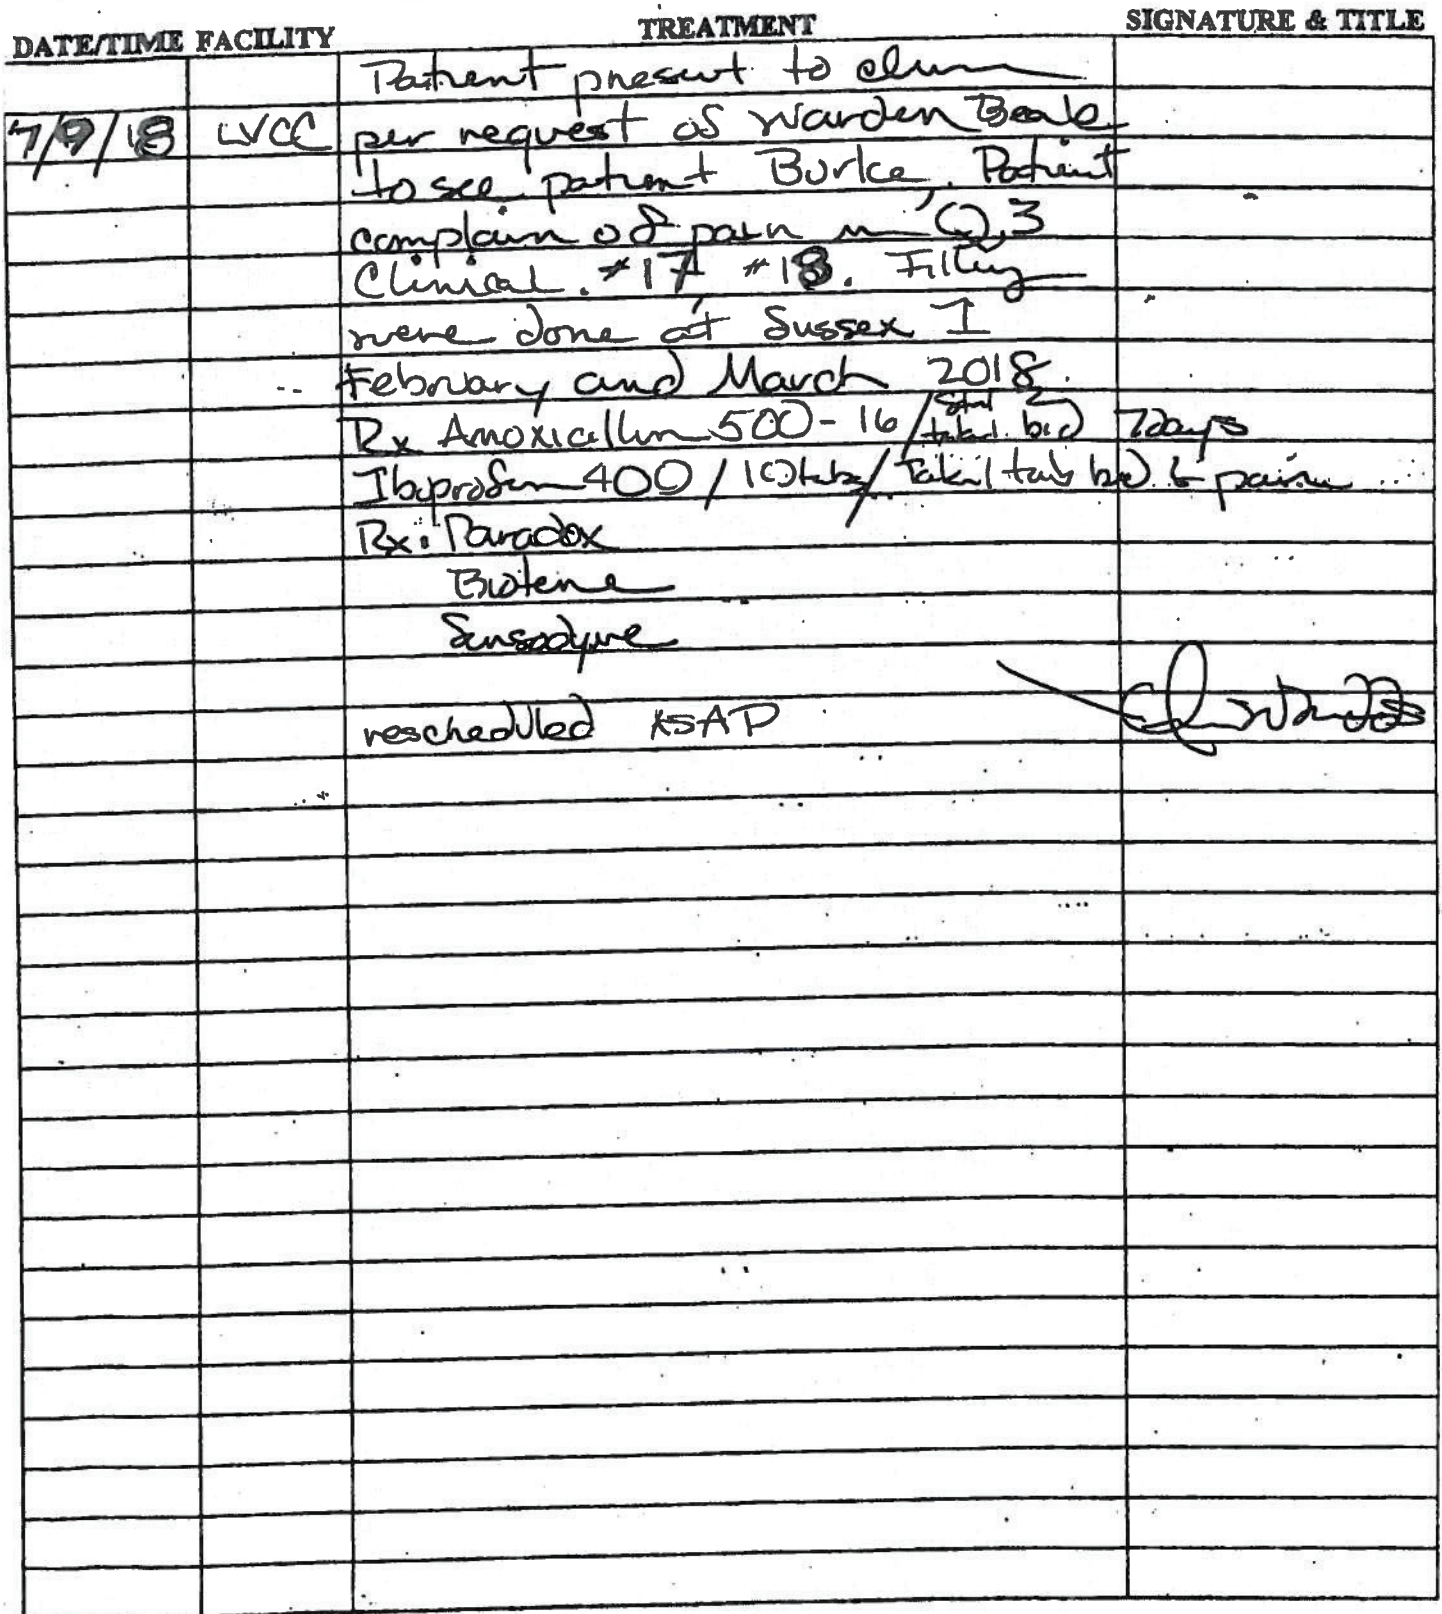 DATE/TIME FACILITY TREATMENT SIGNATURE & TITLE
Patient present to
7/9/18 LVCC per request of Warden Beale
to see patient Burke. Patient
complain of pain in Q3
Clinical. #17, #18.
were done at Sussex I
February and March 2018.
Rx Amoxicillin 500-16/ 2 bid 7days
Ibuprofen 400/10tabs/Take 1 tab bid pain
Rx: Paradox
Biotene
Sensodyne
rescheduled ASAP